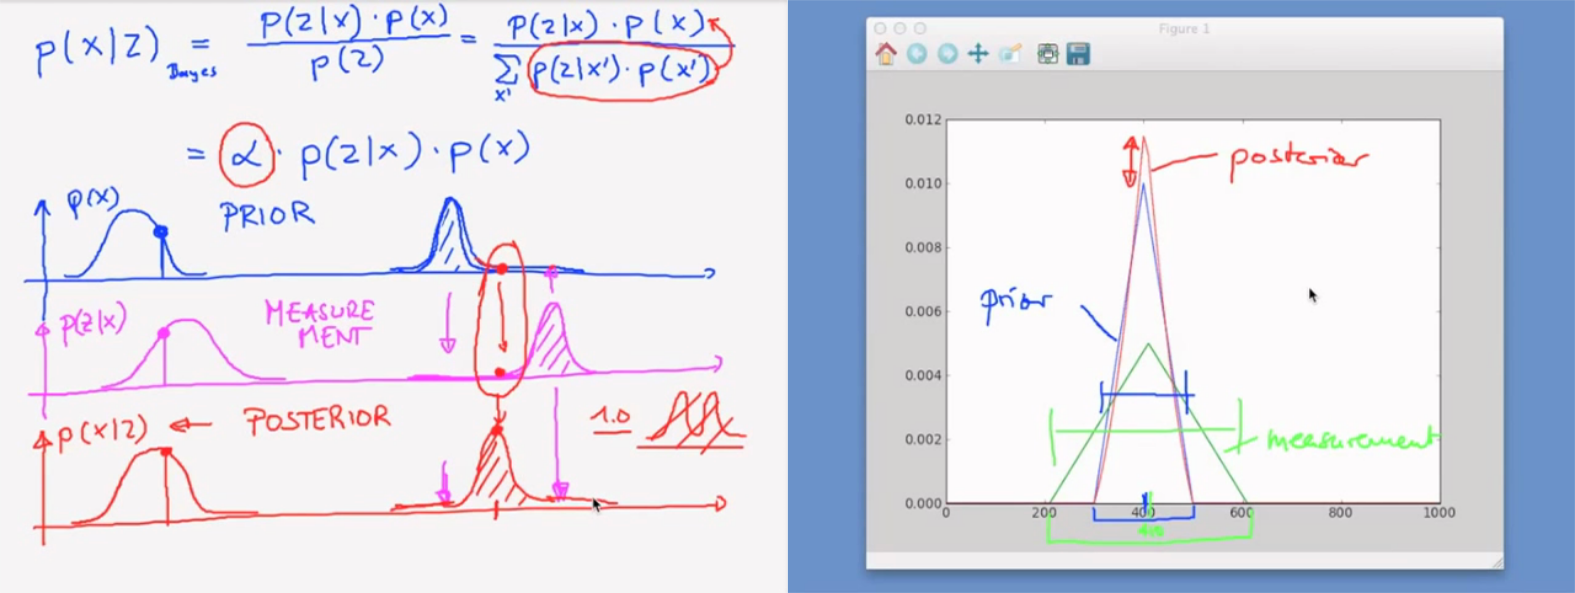 p(x|z) = p(z|x) · p(x) / p(z) = p(z|x) · p(x) / Σ p(z|x') · p(x')
Bayes
x'
= α · p(z|x) · p(x)
p(x) PRIOR
p(z|x) MEASURE
MENT
p(x|z) ← POSTERIOR 1.0
Figure 1
0.012
0.010
0.008
0.006
0.004
0.002
0.000
0 200 400 600 800 1000
posterior
prior
measurement